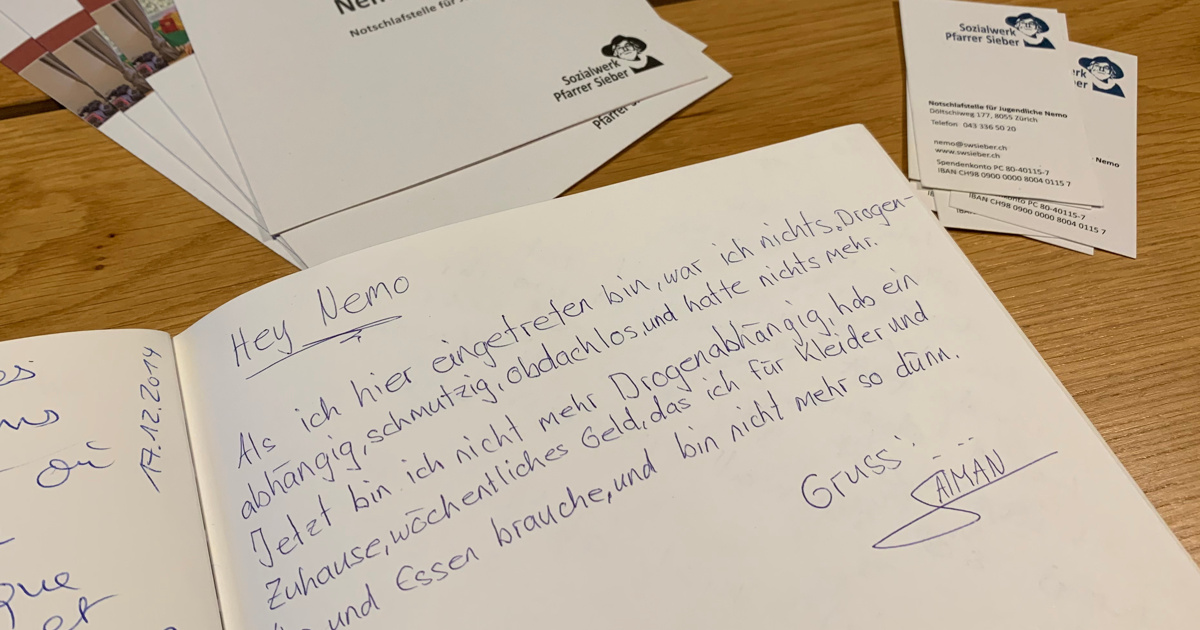 Notschlafstelle für
Sozialwerk
Pfarrer Sieber
Sozialwerk
Pfarrer Sieber
Notschlafstelle für Jugendliche Nemo
Döltschiweg 177, 8055 Zürich
Telefon 043 336 50 20
nemo@swsieber.ch
www.swsieber.ch
Spendenkonto PC 80-40115-7
IBAN CH98 0900 0000 8004 0115 7
Nemo
PC 80-40115-7
IBAN CH98 0900 0000 8004 0115 7
17.12.2014
où
Hey Nemo
Als ich hier eingetreten bin, war ich nichts. Drogen-
abhängig, schmutzig, obdachlos und hatte nichts mehr.
Jetzt bin ich nicht mehr Drogenabhängig, hab ein
Zuhause, wöchentliches Geld, das ich für Kleider und
und Essen brauche, und bin nicht mehr so dünn.
Gruss: